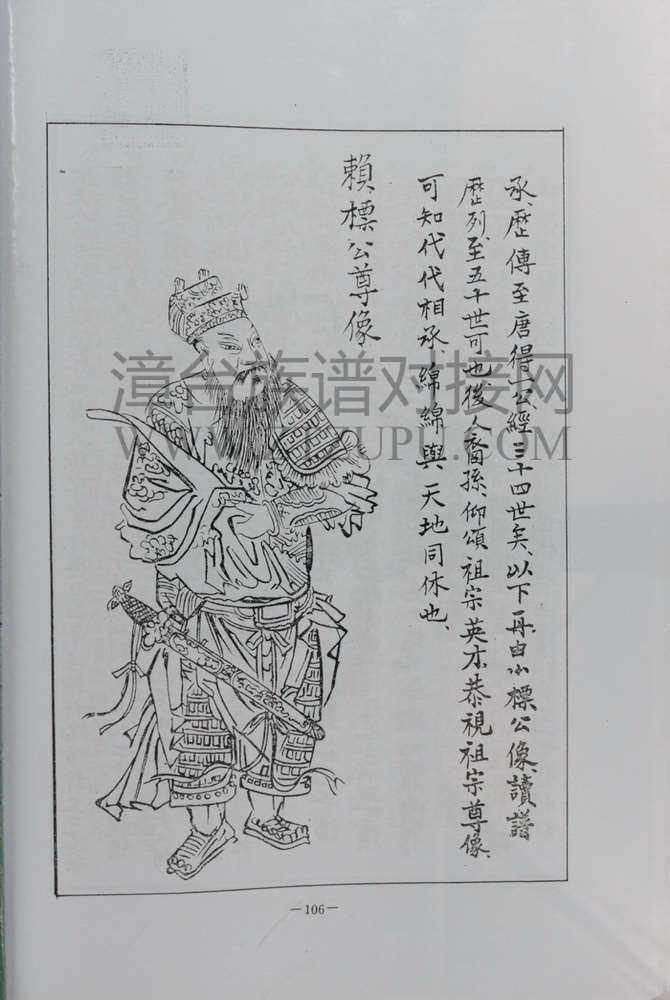 承、歷傳至唐得一公、經三十四世矣、以下再由小標公像、讀譜
歷列、至五十世可也、後人裔孫、仰頌祖宗英才、恭視祖宗尊像、
可知代代相承、綿綿與天地同休也、
賴標公尊像
漳台族谱对接网
—106—